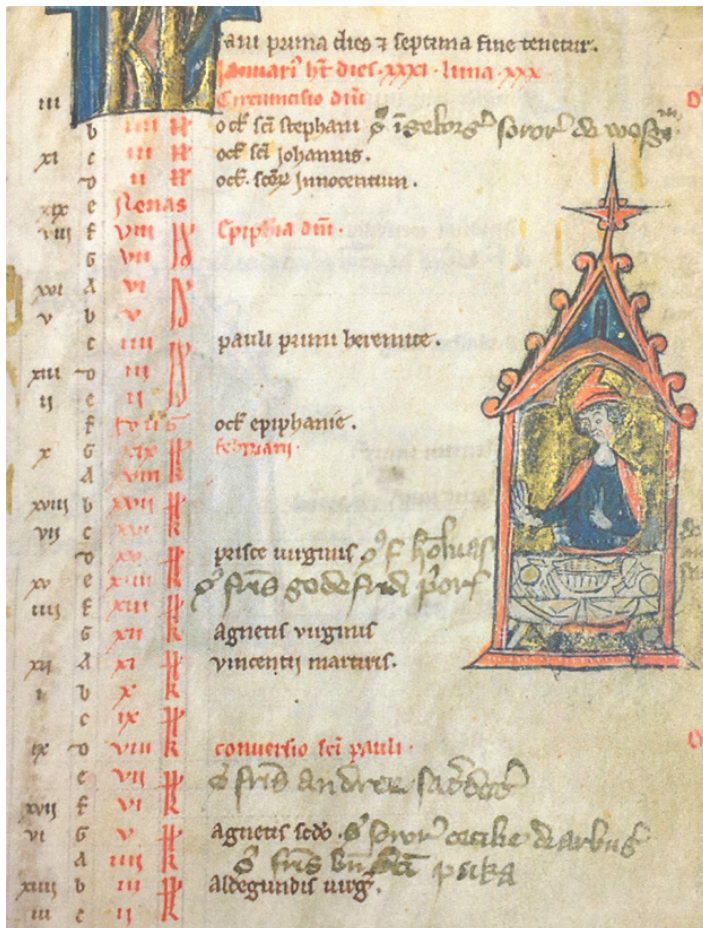 Jani prima dies ⁊ septima fine tenetur.
Januari' ht dies xxxi luna xxx
iii Circuncisio dni
b iiii N oct' sci stephani
xi c iii N oct' sci Johannis.
d ii N oct' scor Innocentum.
xix e Nonas
viii f viii Id Epiphia dni.
G vii Id
xvi A vi Id
v b v Id
c iiii Id pauli primi heremite.
xiii d iii Id
ii e ii Id
f oct' epiphanie.
x G xix februarii.
A xviii
xviii b xvii kl
vii c xvi kl
d xv kl prisce uirginis
xv e xiiii kl o fris godefridi
iiii f xiii kl
G xii kl agnetis uirginis
xii A xi kl vincentii martiris.
i b x kl
c ix kl
ix d viii kl conversio sci pauli.
e vii kl o fris andree
xvii f vi kl
vi G v kl agnetis scdo. o soror' cecilie de
A iiii kl o fris
xiiii b iii kl aldegundis uirg'.
iii c ii kl